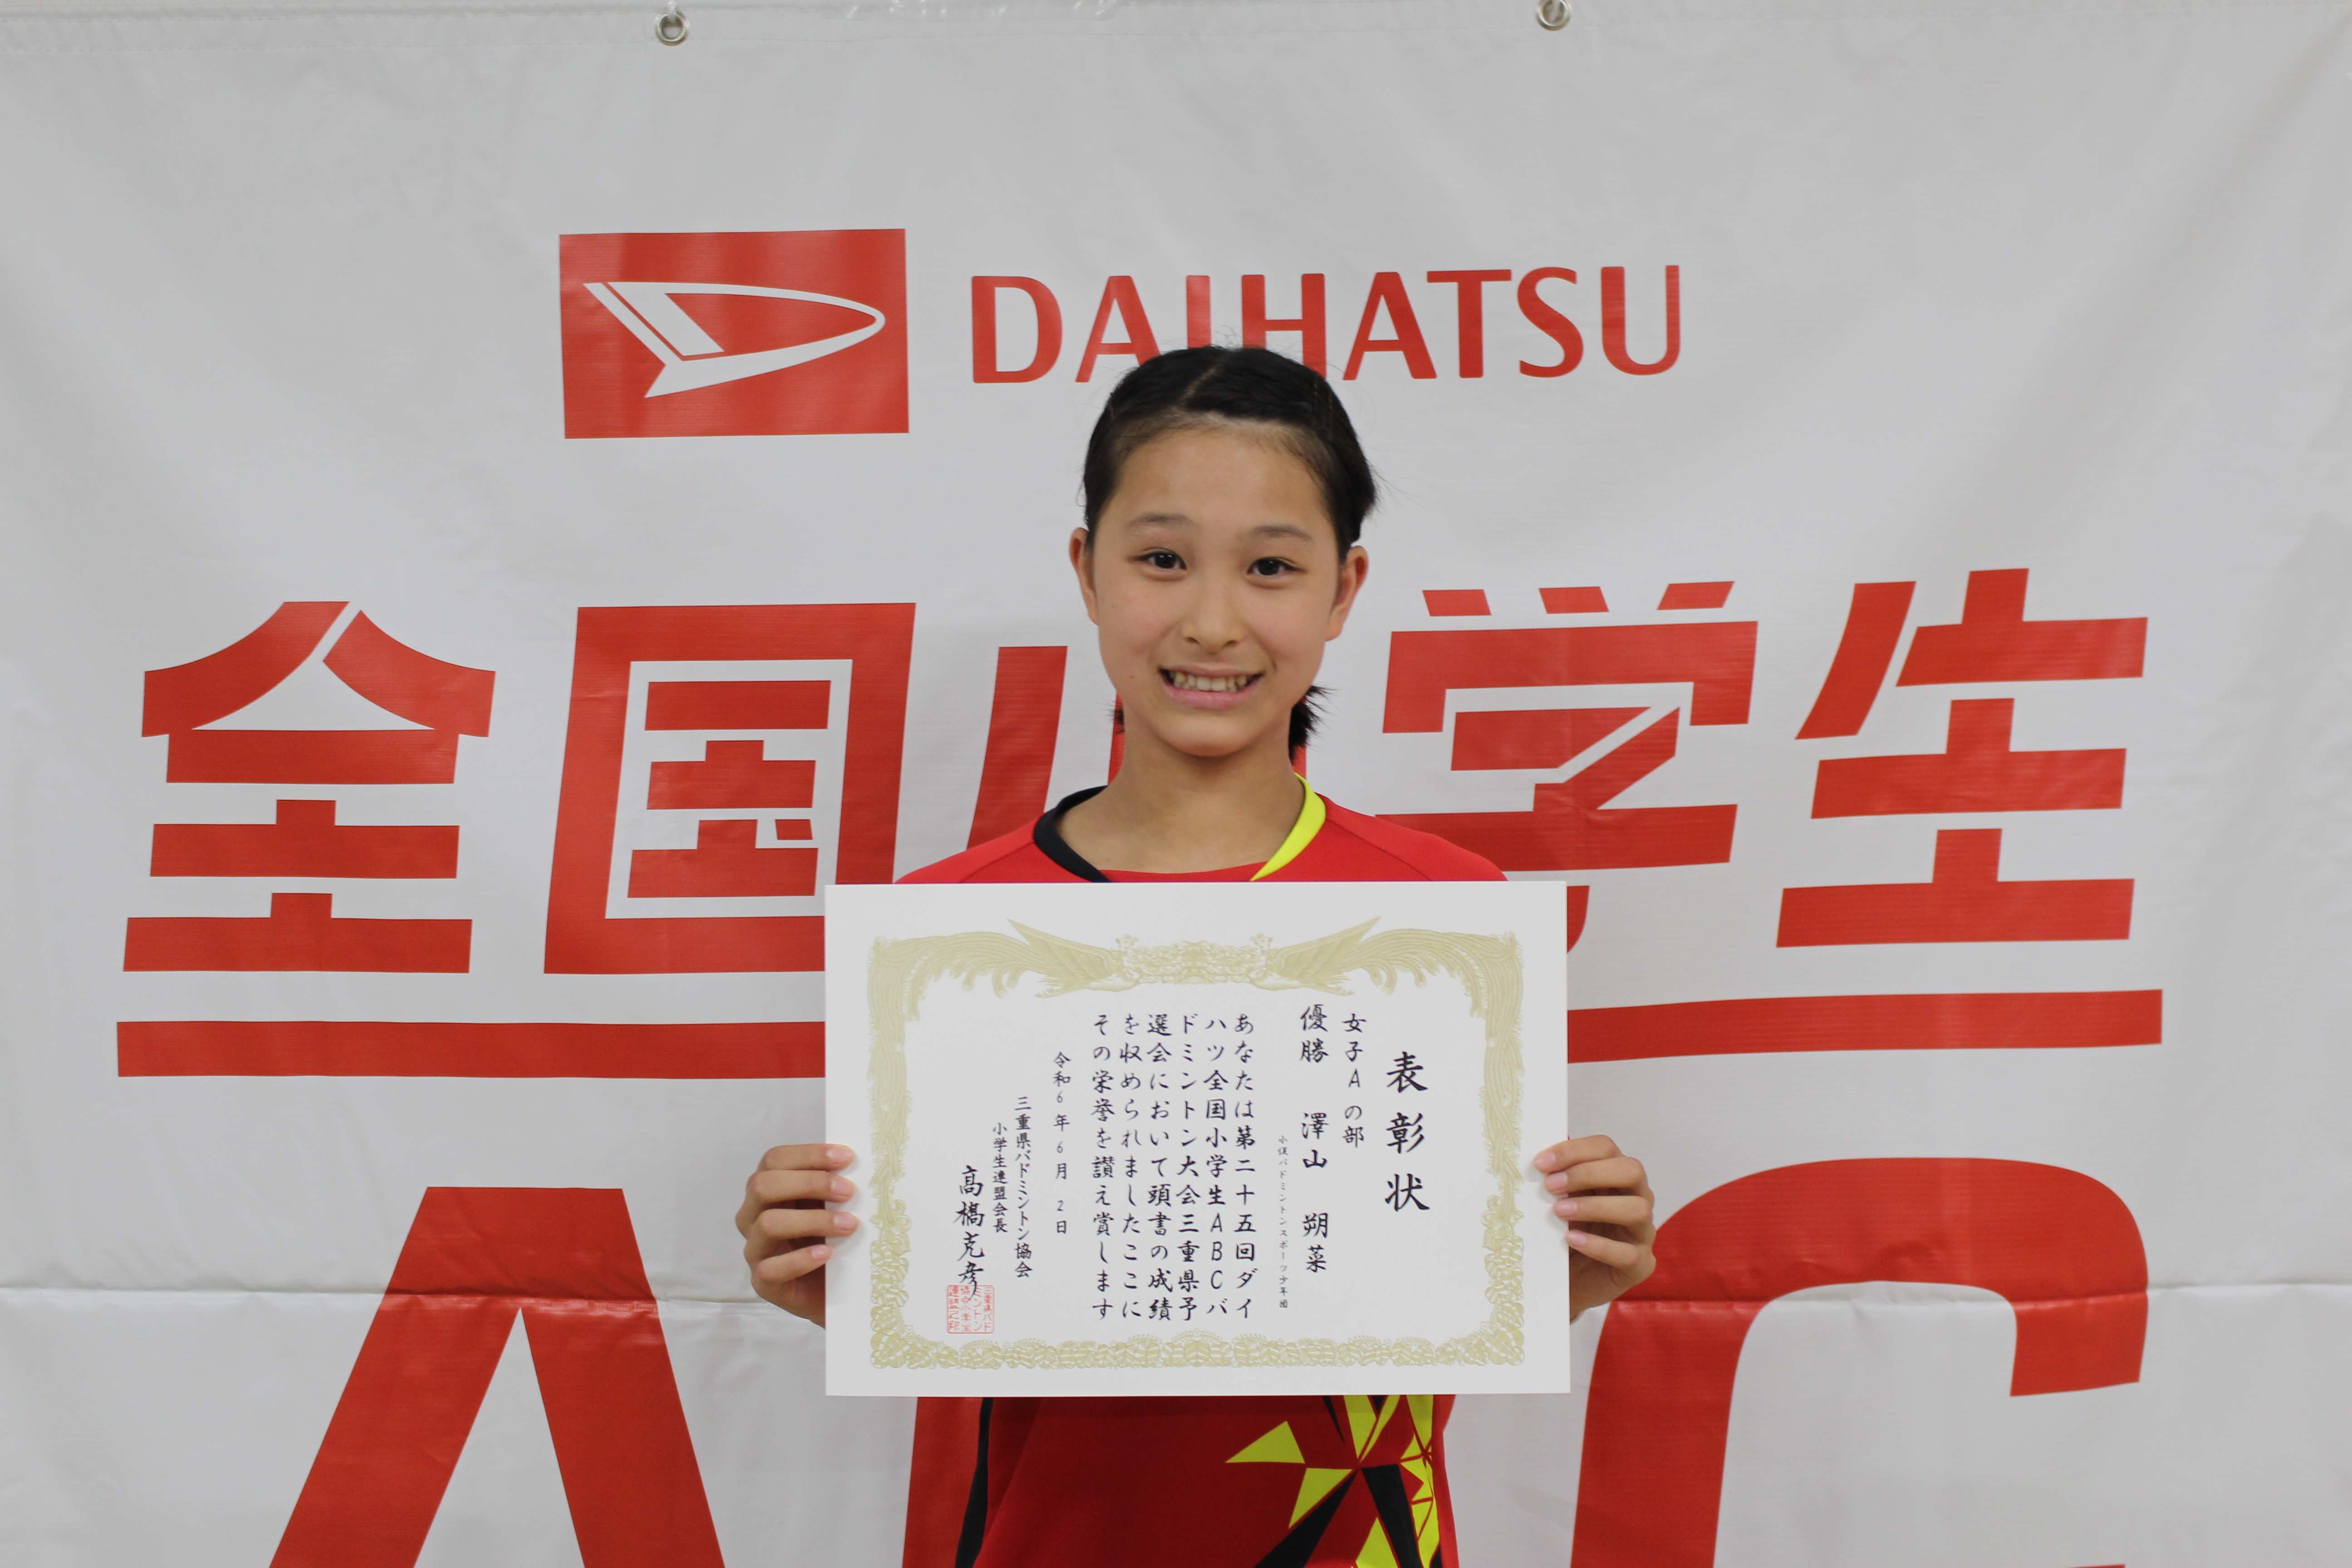 DAIHATSU
全国小学生
A C
表彰状
女子Aの部
優勝 澤山 朔菜
小俣バドミントンスポーツ少年団
あなたは第二十五回ダイ
ハツ全国小学生ABCバ
ドミントン大会三重県予
選会において頭書の成績
を収められましたここに
その栄誉を讃え賞します
令和6年6月2日
三重県バドミントン協会
小学生連盟会長
高橋克彦